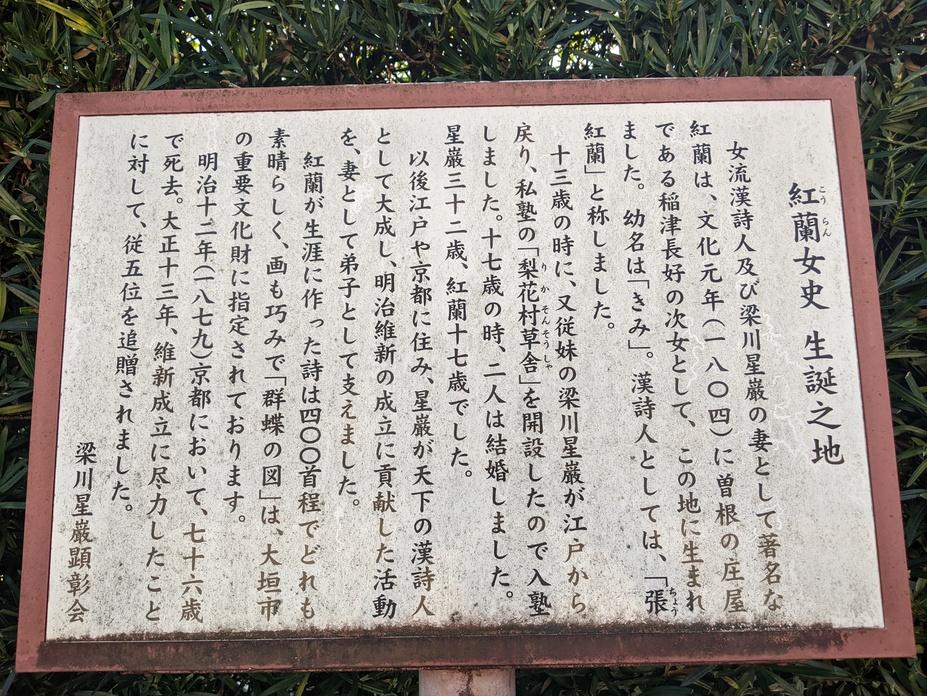 紅蘭女史 生誕之地
こうらん
女流漢詩人及び梁川星巌の妻として著名な
紅蘭は、文化元年(一八〇四)に曽根の庄屋
である稲津長好の次女として、この地に生まれ
ました。幼名は「きみ」。漢詩人としては、「張
ちょう
紅蘭」と称しました。
十三歳の時に、又従妹の梁川星巌が江戸から
戻り、私塾の「梨花村草舎」を開設したので入塾
りかそんそうしゃ
しました。十七歳の時、二人は結婚しました。
星巌三十二歳、紅蘭十七歳でした。
以後江戸や京都に住み、星巌が天下の漢詩人
として大成し、明治維新の成立に貢献した活動
を、妻として弟子として支えました。
紅蘭が生涯に作った詩は四〇〇首程でどれも
素晴らしく、画も巧みで「群蝶の図」は、大垣市
の重要文化財に指定されております。
明治十二年(一八七九)京都において、七十六歳
で死去。大正十三年、維新成立に尽力したこと
に対して、従五位を追贈されました。
梁川星巌顕彰会